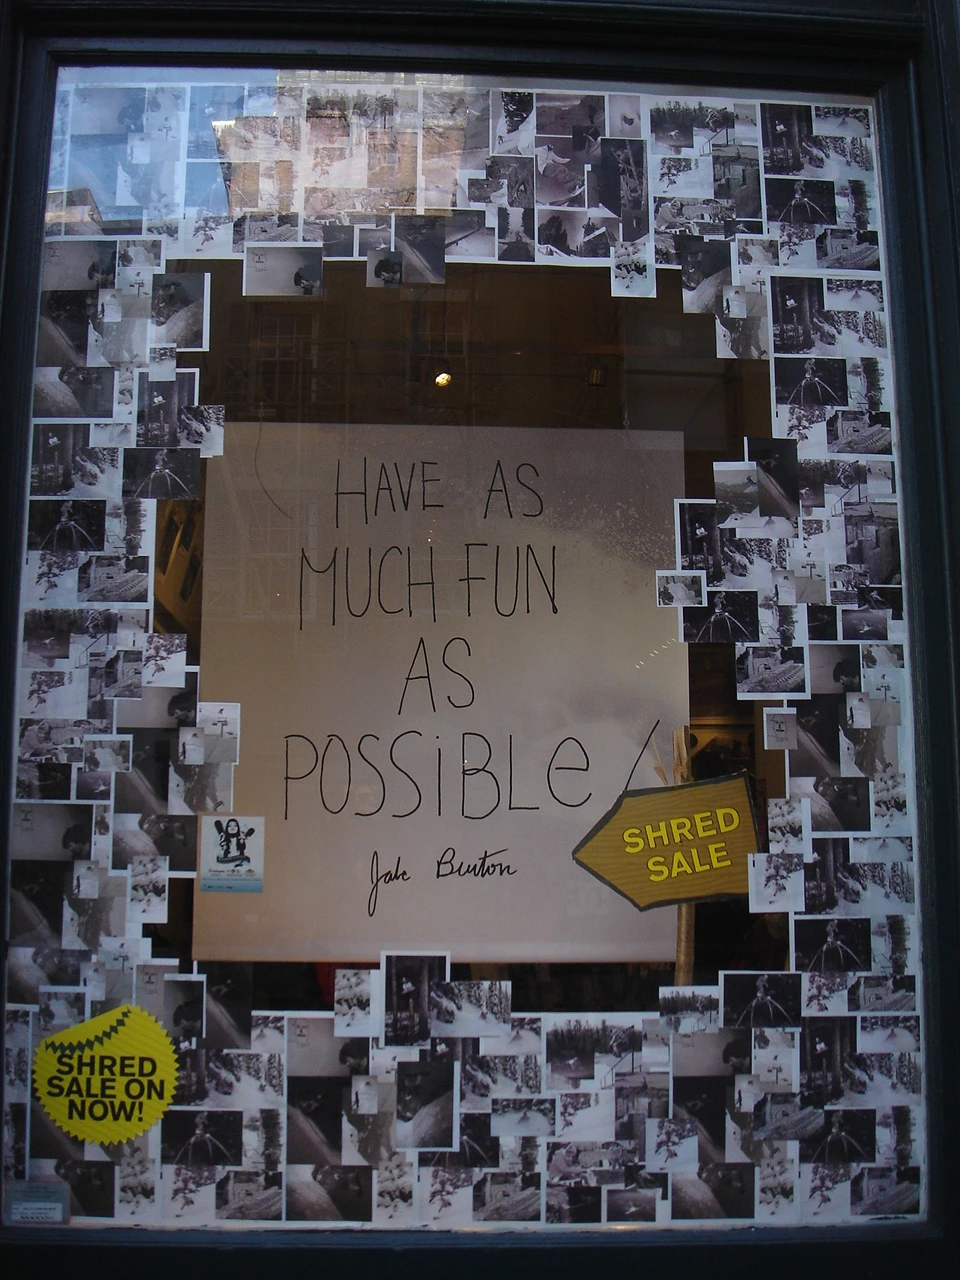 HAVE AS
MUCH FUN
AS
POSSiBLe/
Jake Burton
SHRED
SALE
SHRED
SALE ON
NOW!